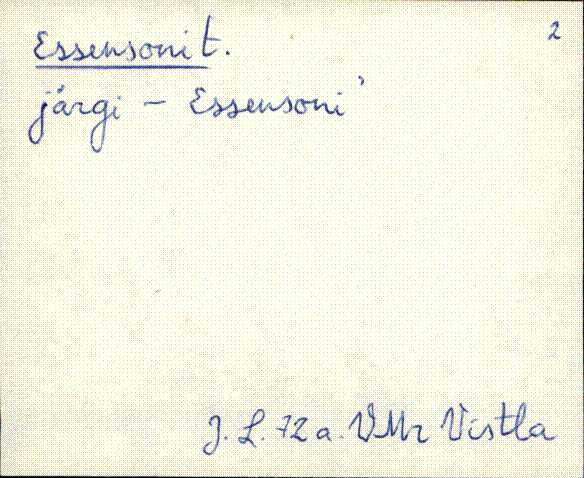 2
Essensoni t.
järgi - Essensoni'
J. L. 72 a. VMr Vistla